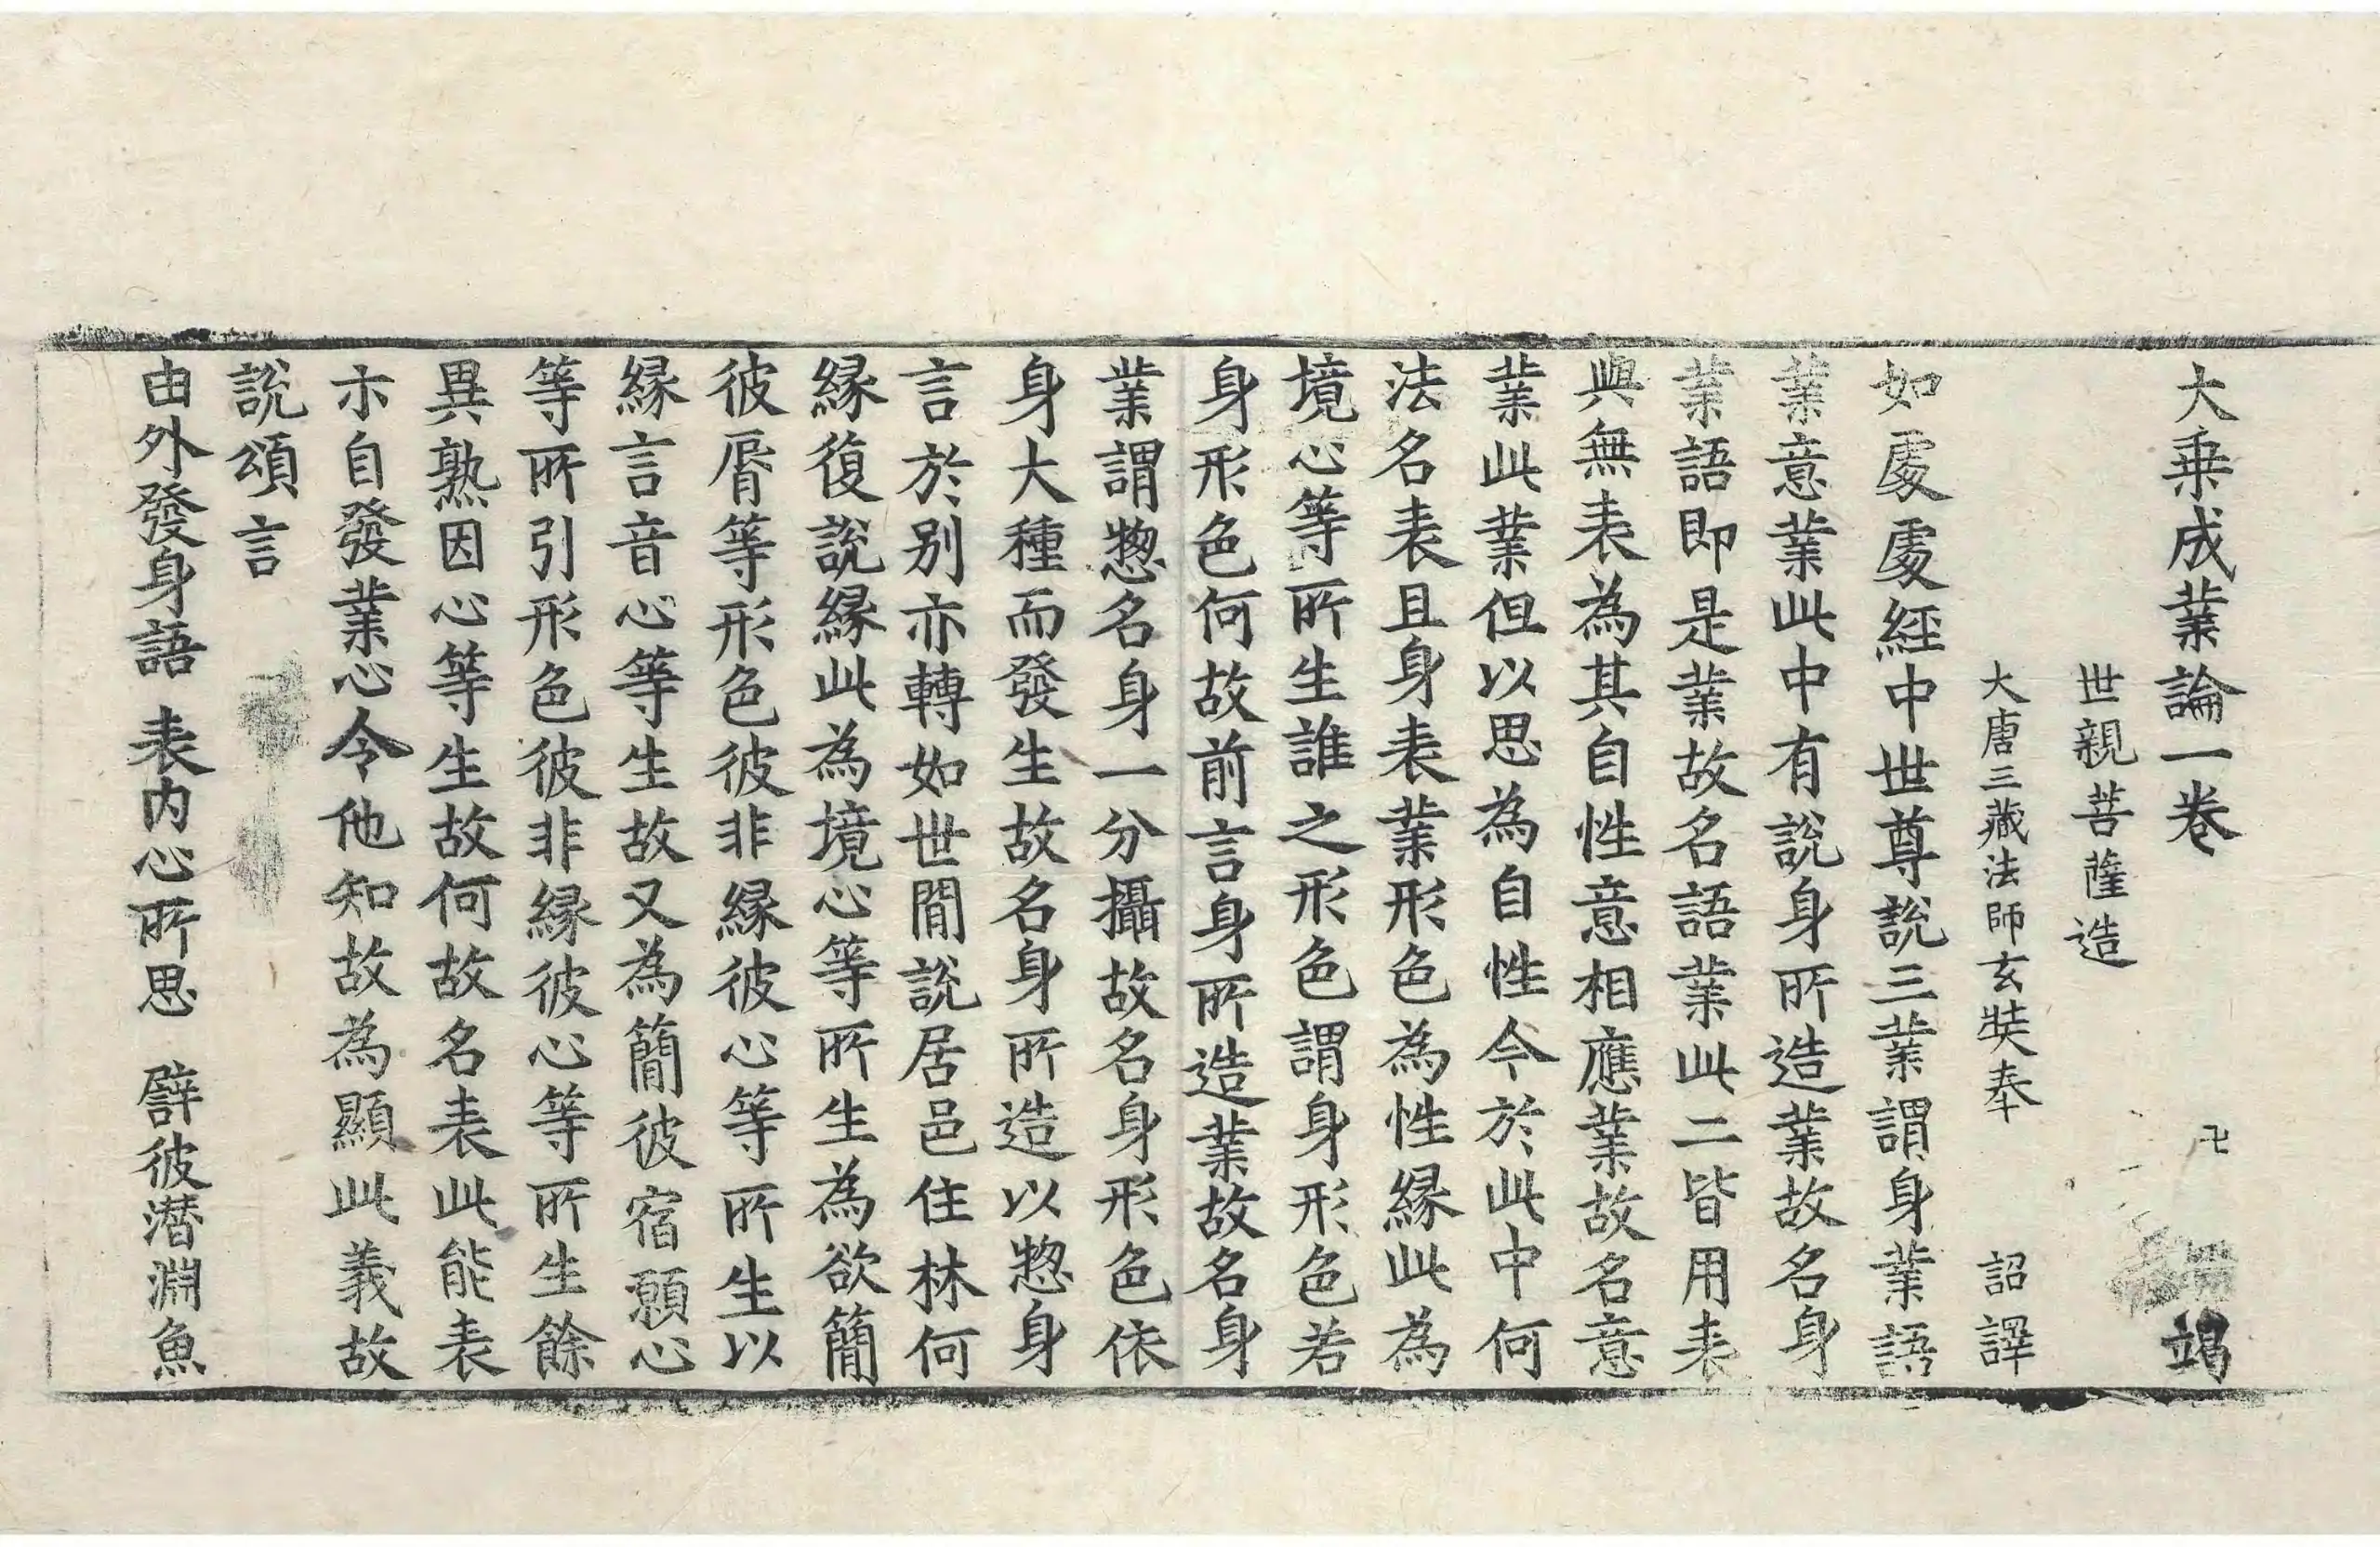 大乗成業論一卷 卍 竭
世親菩薩造
大唐三藏法師玄奘奉 詔譯
如處處經中世尊說三業謂身業語
業意業此中有說身所造業故名身
業語即是業故名語業此二皆用表
與無表為其自性意相應業故名意
業此業但以思為自性今於此中何
法名表且身表業形色為性緣此為
境心等所生誰之形色謂身形色若
身形色何故前言身所造業故名身
業謂惣名身一分攝故名身形色依
身大種而發生故名身所造以惣身
言於别亦轉如世間說居邑住林何
緣復說緣此為境心等所生為欲簡
彼脣等形色彼非緣彼心等所生以
緣言音心等生故又為簡彼宿願心
等所引形色彼非緣彼心等所生餘
異熟因心等生故何故名表此能表
示自發業心令他知故為顯此義故
說頌言
由外發身語 表内心所思 譬彼潛淵魚